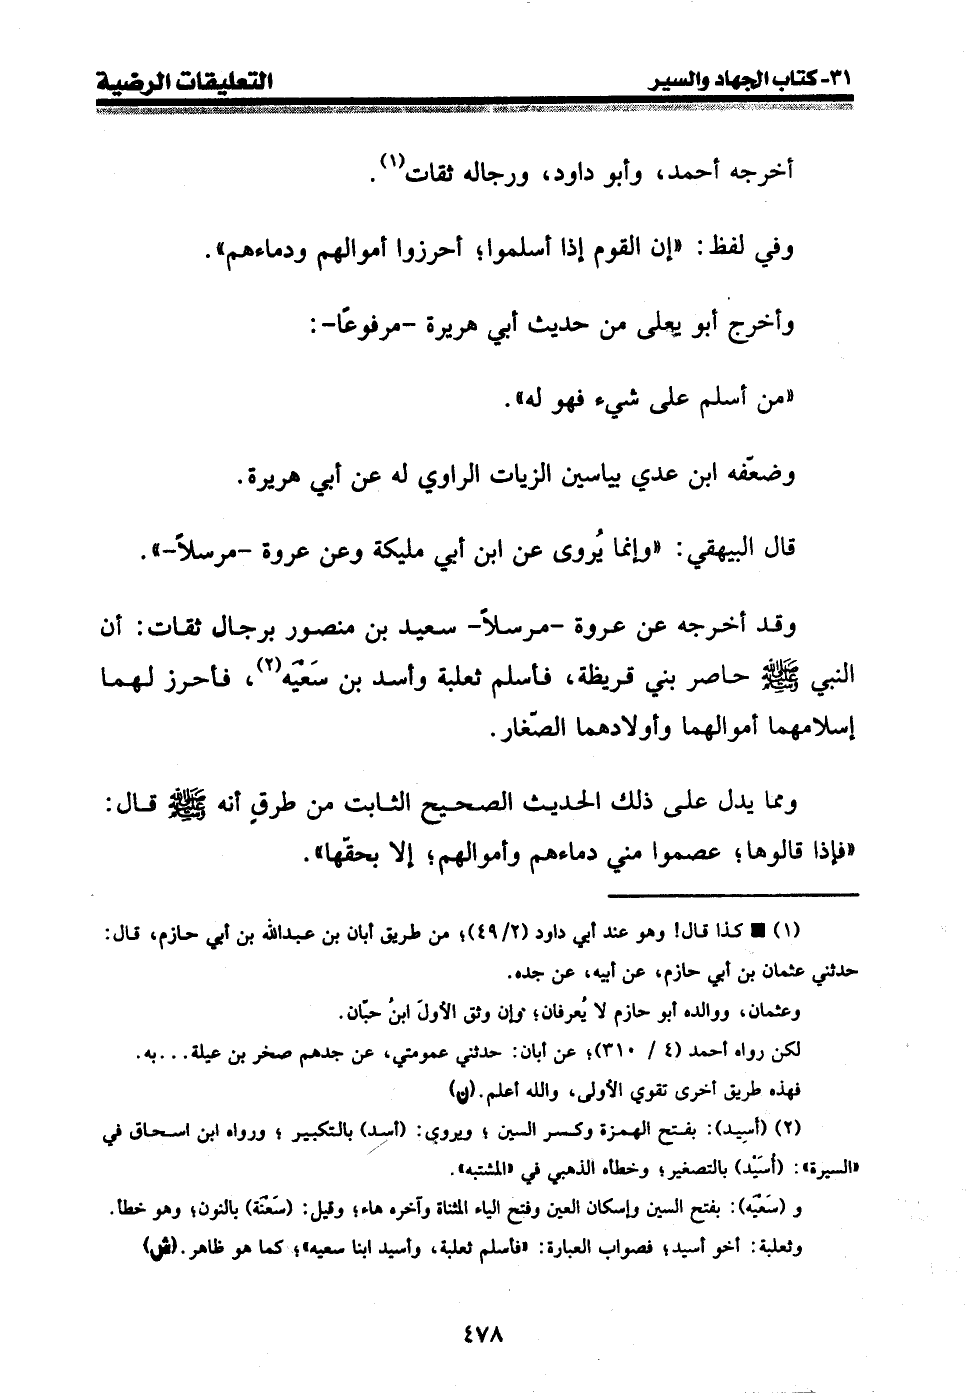 ٣١- كتاب الجهاد والسير
التعليقات الرضية
أخرجه أحمد، وأبو داود، ورجاله ثقات(١).
وفي لفظ: «إن القوم إذا أسلموا؛ أحرزوا أموالهم ودماءهم».
وأخرج أبو يعلى من حديث أبي هريرة -مرفوعًا-:
«من أسلم على شيء فهو له».
وضعّفه ابن عدي بياسين الزيات الراوي له عن أبي هريرة.
قال البيهقي: «وإنما يُروى عن ابن أبي مليكة وعن عروة -مرسلاً-».
وقد أخرجه عن عروة -مرسلاً- سعيد بن منصور برجال ثقات: أن
النبي ﷺ حاصر بني قريظة، فأسلم ثعلبة وأسد بن سَعْيَه(٢)، فأحرز لهما
إسلامهما أموالهما وأولادهما الصّغار.
ومما يدل على ذلك الحديث الصحيح الثابت من طرقٍ أنه ﷺ قال:
«فإذا قالوها؛ عصموا مني دماءهم وأموالهم؛ إلا بحقّها».
(١) ■ كذا قال! وهو عند أبي داود (٤٩/٢)؛ من طريق أبان بن عبدالله بن أبي حازم، قال:
حدثني عثمان بن أبي حازم، عن أبيه، عن جده.
وعثمان، ووالده أبو حازم لا يُعرفان؛ وإن وثق الأولَ ابنُ حبّان.
لكن رواه أحمد (٤ / ٣١٠)؛ عن أبان: حدثني عمومتي، عن جدهم صخر بن عيلة...به.
فهذه طريق أخرى تقوي الأولى، والله أعلم.(ن)
(٢) (أسيد): بفتح الهمزة وكسر السين ؛ ويروي: (أسد) بالتكبير ؛ ورواه ابن اسحاق في
«السيرة»: (أُسَيْد) بالتصغير؛ وخطأه الذهبي في «المشتبه».
و (سَعْيَه): بفتح السين وإسكان العين وفتح الياء المثناة وآخره هاء؛ وقيل: (سَعْنَة) بالنون؛ وهو خطأ.
وثعلبة: أخو أسيد؛ فصواب العبارة: «فأسلم ثعلبة، وأسيد ابنا سعيه»؛ كما هو ظاهر.(ش)
٤٧٨